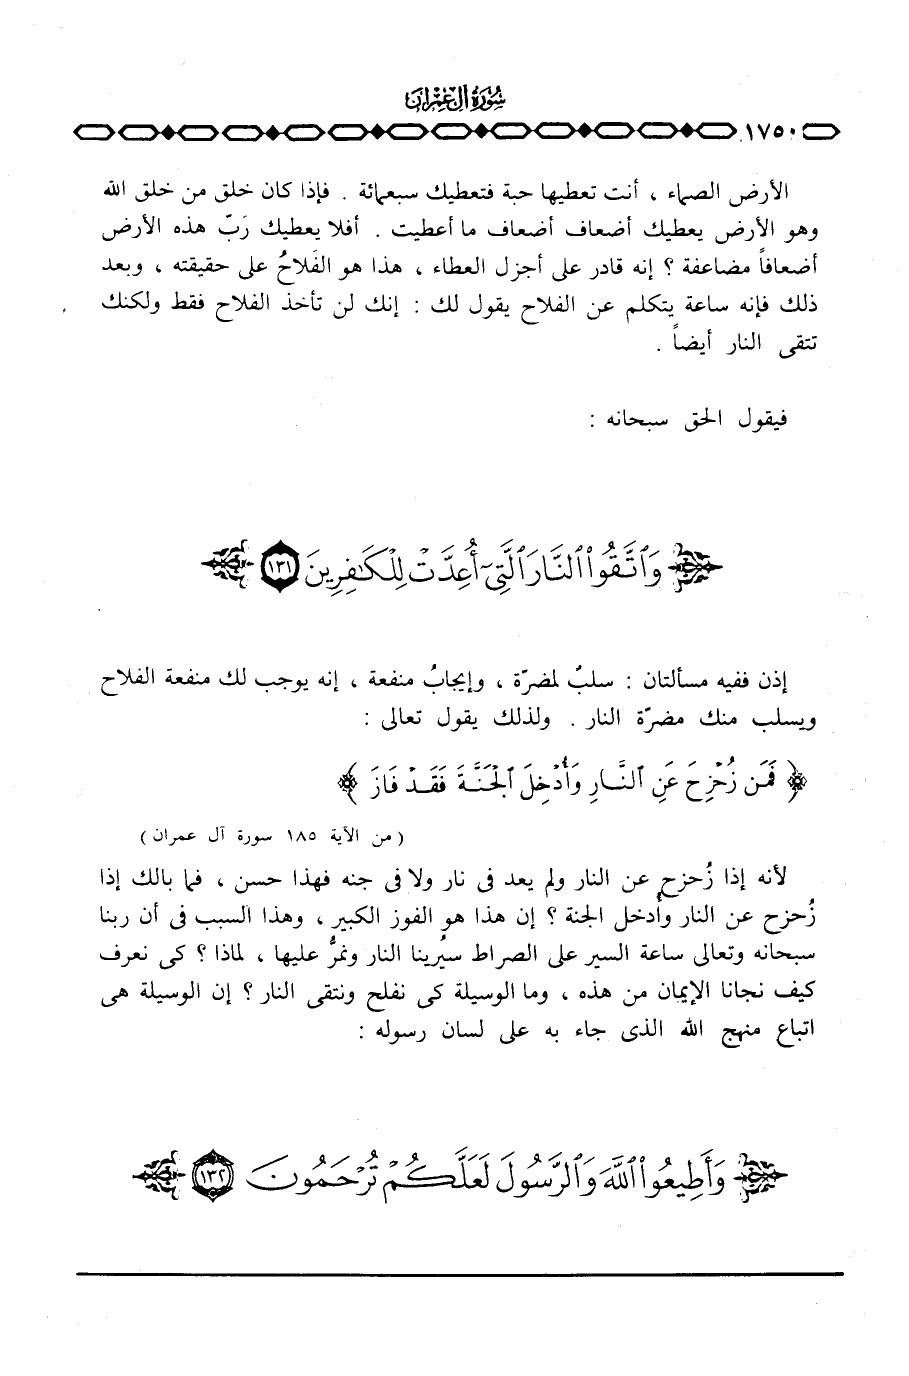 سورة آل عمران
١٧٥٠
الأرض الصماء ، أنت تعطيها حبة فتعطيك سبعمائة . فإذا كان خلق من خلق الله
وهو الأرض يعطيك أضعاف أضعاف ما أعطيت . أفلا يعطيك رَبّ هذه الأرض
أضعافاً مضاعفة ؟ إنه قادر على أجزل العطاء ، هذا هو الفَلاحُ على حقيقته ، وبعد
ذلك فإنه ساعة يتكلم عن الفلاح يقول لك : إنك لن تأخذ الفلاح فقط ولكنك
تتقى النار أيضاً .
فيقول الحق سبحانه :
وَٱتَّقُوا۟ ٱلنَّارَ ٱلَّتِىٓ أُعِدَّتْ لِلْكَٰفِرِينَ ١٣١
إذن ففيه مسألتان : سلبٌ لمضرّة ، وإيجابُ منفعة ، إنه يوجب لك منفعة الفلاح
ويسلب منك مضرّة النار . ولذلك يقول تعالى :
﴿ فَمَن زُحْزِحَ عَنِ ٱلنَّارِ وَأُدْخِلَ ٱلْجَنَّةَ فَقَدْ فَازَ ﴾
( من الآية ١٨٥ سورة آل عمران )
لأنه إذا زُحزح عن النار ولم يعد فى نار ولا فى جنه فهذا حسن ، فما بالك إذا
زُحزح عن النار وأُدخل الجنة ؟ إن هذا هو الفوز الكبير ، وهذا السبب فى أن ربنا
سبحانه وتعالى ساعة السير على الصراط سيُرينا النار ونمرُّ عليها ، لماذا ؟ كى نعرف
كيف نجانا الإيمان من هذه ، وما الوسيلة كى نفلح ونتقى النار ؟ إن الوسيلة هى
اتباع منهج الله الذى جاء به على لسان رسوله :
وَأَطِيعُوا۟ ٱللَّهَ وَٱلرَّسُولَ لَعَلَّكُمْ تُرْحَمُونَ ١٣٢